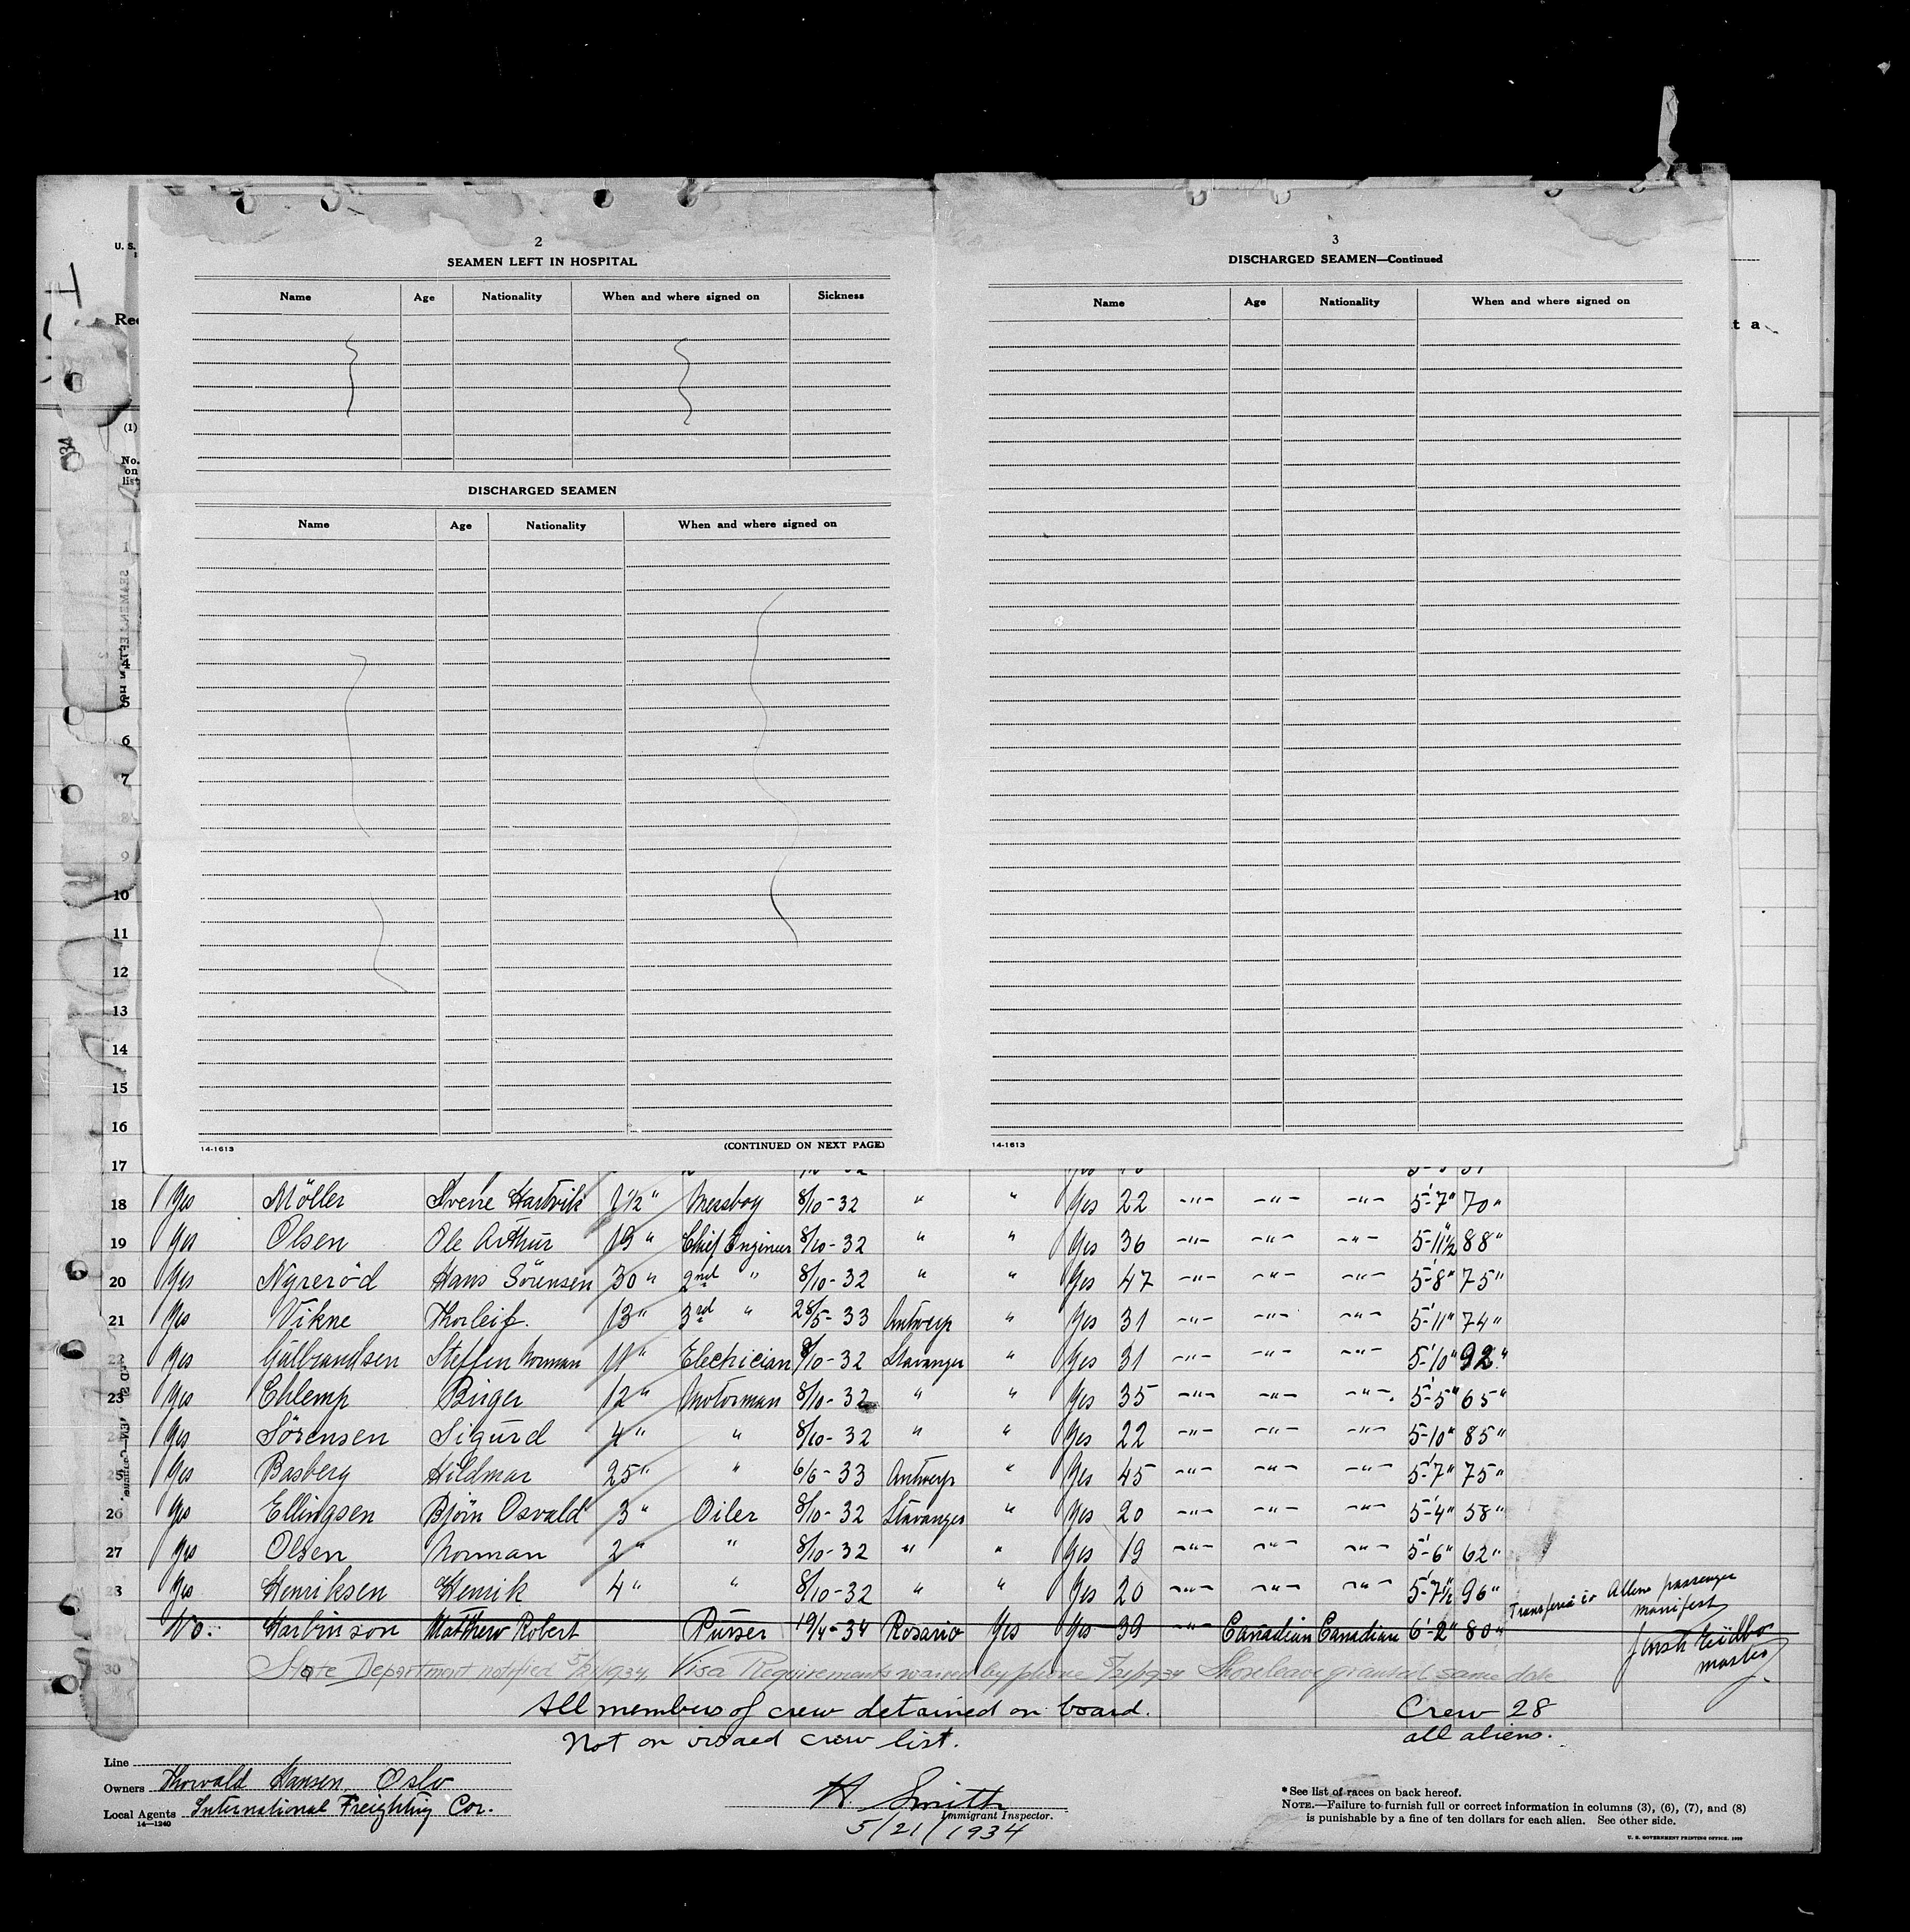 2
SEAMEN LEFT IN HOSPITAL
Name Age Nationality When and where signed on Sickness
DISCHARGED SEAMEN
Name Age Nationality When and where signed on
(CONTINUED ON NEXT PAGE)
14-1613
3
DISCHARGED SEAMEN—Continued
Name Age Nationality When and where signed on
14-1613
U. S.
Rec
t a
(1)
No. on list
1
4
5
6
7
8
9
10
11
12
13
14
15
16
17
18 Yes Möller Sverre Hartvik 1½ " Messboy 8/10-32 " " Yes 22 -"- -"- -"- 5'-7" 70"
19 Yes Olsen Ole Arthur 19 " Chief Engineer 8/10-32 " " Yes 36 -"- -"- -"- 5'-11½" 88"
20 Yes Nyreröd Hans Sörensen 30 " 2nd " 8/10-32 " " Yes 47 -"- -"- -"- 5'-8" 75"
21 Yes Vikne Thorleif. 13 " 3rd " 28/5-33 Antwerp " Yes 31 -"- -"- -"- 5'-11" 74"
22 Yes Gulbrandsen Steffen Norman 11 " Electrician 8/10-32 Stavanger " Yes 31 -"- -"- -"- 5'-10" 92"
23 Yes Ehlemp Birger 12 " Motorman 8/10-32 " " Yes 35 -"- -"- -"- 5'-5" 65"
24 Yes Sörensen Sigurd 4 " " 8/10-32 " " Yes 22 -"- -"- -"- 5'-10" 85"
25 Yes Basberg Hildmar 25 " " 6/6-33 Antwerp " Yes 45 -"- -"- -"- 5'-7" 75"
26 Yes Ellingsen Björn Osvald 3 " Oiler 8/10-32 Stavanger " Yes 20 -"- -"- -"- 5'-4" 58"
27 Yes Olsen Norman 2 " " 8/10-32 " " Yes 19 -"- -"- -"- 5'-6" 62"
28 Yes Henriksen Henrik 4 " " 8/10-32 " " Yes 20 -"- -"- -"- 5'-7½" 96"
Transferred to Aliens passenger manifest
29 No. Harbinson Matthew Robert Purser 19/4-34 Rosario Yes Yes 39 -"- Canadian Canadian 6'-2" 80"
master
30 State Department notified 5/21/1934, Visa Requirements waived by phone 5/21/1934 Shore leave granted same date
All members of crew detained on board. Crew 28
Not on visaed crew list. all aliens.
Line
Owners Thorvald Hansen, Oslo
Local Agents International Freighting Cor.
14—1240
H Smith
Immigrant Inspector.
5/21/1934
*See list of races on back hereof.
NOTE.—Failure to furnish full or correct information in columns (3), (6), (7), and (8)
is punishable by a fine of ten dollars for each alien. See other side.
U. S. GOVERNMENT PRINTING OFFICE.